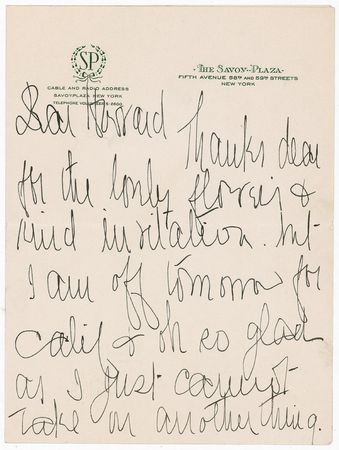 SP
CABLE AND RADIO ADDRESS
SAVOYPLAZA NEW YORK
TELEPHONE VOLUNTEER 5-2600
·THE SAVOY-PLAZA·
FIFTH AVENUE 58TH AND 59TH STREETS
NEW YORK
Dear Howard Thanks dear
for the lovely flowers &
kind invitation. but
I am off tomorrow for
Calif & oh so glad
as I just cannot
take on another thing.